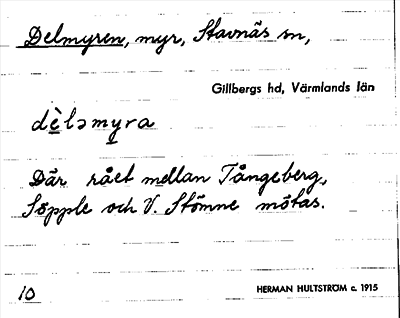 Delmyren, myr, Stavnäs sn,
Gillbergs hd, Värmlands län
dèləmyra
Där rået mellan Tångeberg,
Söpple och V. Stömne mötas.
10
HERMAN HULTSTRÖM c. 1915